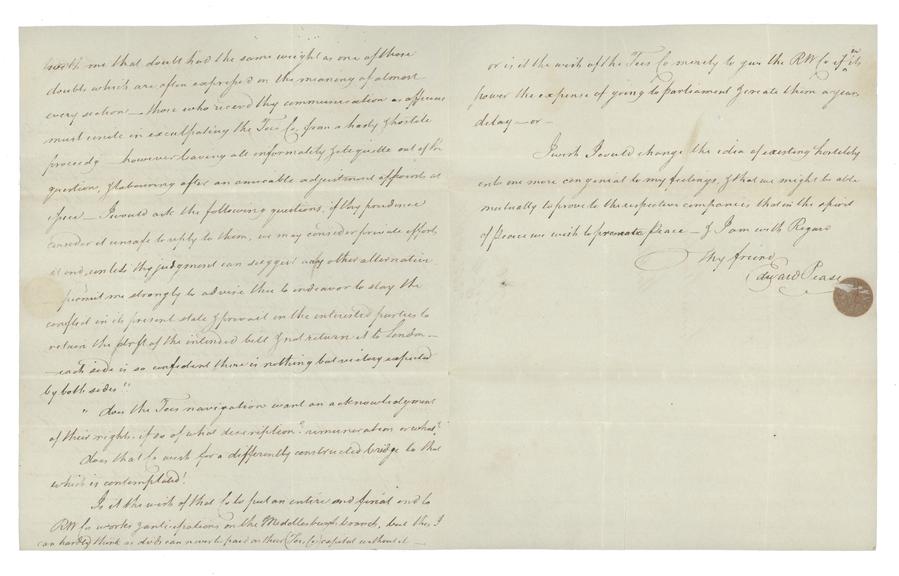 with me that doubt had the same weight as one of those
doubts which are often expressed on the meaning of almost
every section — those who record thy communication as officious
must unite in exculpating the Tees Co. from a hasty & hostile
proceedg — however leaving all informality & etiquette out of the
question, & labouring after an amicable adjustment affords at
I would ask the following questions, if thy prudence
consider it unsafe to reply to them, we may consider private efforts
at end, unless thy judgment can suggest any other alternative
permit me strongly to advise thee to endeavor to stay the
conflict in its present state & prevail on the interested parties to
retain the drft of the intended bill & not return it to London —
— each side is so confident there is nothing but victory expected
by both sides"
" does the Tees navigation want an acknowledgment
of their rights, if so of what description? remuneration or what?
does that Co wish for a differently constructed bridge to that
which is contemplated!
Is it the wish of that Co to put an entire and final end to
RW Co works & anticipations on the Middlesburgh branch, but this I
can hardly think as divds can never be paid on their (Tees Co) capital without it —
or is it the wish of the Tees Co merely to give the RW Co if in its
power the expense of going to parliament & create them a years
delay — or —
I wish I could change the idea of existing hostility
into one more congenial to my feelings, & that we might be able
mutually to prove to the respective companies that in the spirit
of peace we wish to promote Peace — & I am with Regard
Thy friend
Edward Pease